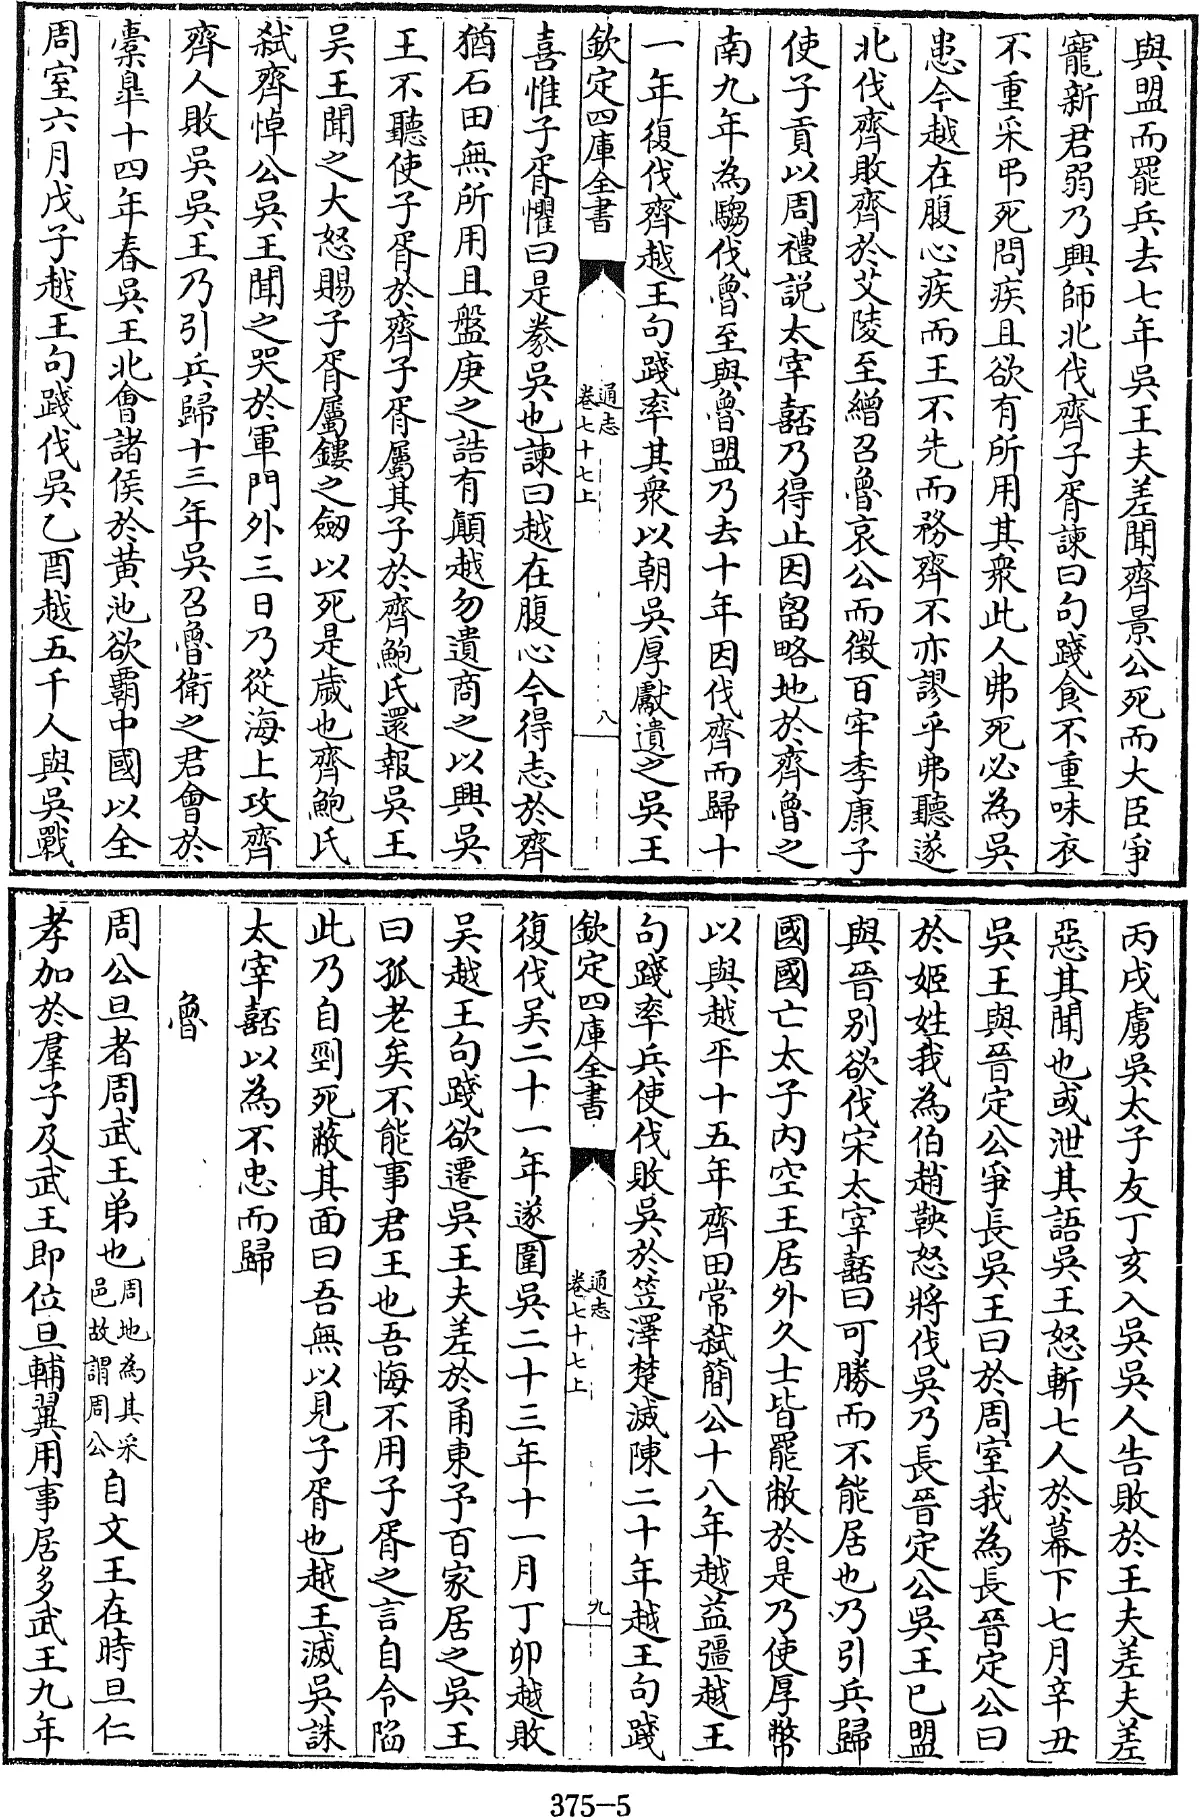 與盟而罷兵去七年吳王夫差聞齊景公死而大臣爭
寵新君弱乃興師北伐齊子胥諫曰句踐食不重味衣
不重采弔死問疾且欲有所用其衆此人弗死必為吳
患今越在腹心疾而王不先而務齊不亦謬乎弗聽遂
北伐齊敗齊於艾陵至繒召魯哀公而徵百牢季康子
使子貢以周禮說太宰嚭乃得止因留略地於齊魯之
南九年為騶伐魯至與魯盟乃去十年因伐齊而歸十
一年復伐齊越王句踐率其衆以朝吳厚獻遺之吳王
欽定四庫全書
通志
卷七十七上
八
喜惟子胥懼曰是豢吳也諫曰越在腹心今得志於齊
猶石田無所用且盤庚之誥有顛越勿遺商之以興吳
王不聽使子胥於齊子胥屬其子於齊鮑氏還報吳王
吳王聞之大怒賜子胥屬鏤之劒以死是歲也齊鮑氏
弑齊悼公吳王聞之哭於軍門外三日乃從海上攻齊
齊人敗吳吳王乃引兵歸十三年吳召魯衛之君會於
橐臯十四年春吳王北會諸侯於黄池欲霸中國以全
周室六月戊子越王句踐伐吳乙酉越五千人與吳戰
丙戌虜吳太子友丁亥入吳吳人告敗於王夫差夫差
惡其聞也或泄其語吳王怒斬七人於幕下七月辛丑
吳王與晉定公爭長吳王曰於周室我為長晉定公曰
於姬姓我為伯趙鞅怒將伐吳乃長晉定公吳王已盟
與晉别欲伐宋太宰嚭曰可勝而不能居也乃引兵歸
國國亡太子内空王居外久士皆罷敝於是乃使厚幣
以與越平十五年齊田常弑簡公十八年越益彊越王
句踐率兵使伐敗吳於笠澤楚滅陳二十年越王句踐
欽定四庫全書
通志
卷七十七上
九
復伐吳二十一年遂圍吳二十三年十一月丁卯越敗
吳越王句踐欲遷吳王夫差於甬東予百家居之吳王
曰孤老矣不能事君王也吾悔不用子胥之言自令陷
此乃自剄死蔽其面曰吾無以見子胥也越王滅吳誅
太宰嚭以為不忠而歸
魯
周公旦者周武王弟也周地為其采邑故謂周公自文王在時旦仁
孝加於羣子及武王即位旦輔翼用事居多武王九年
375-5